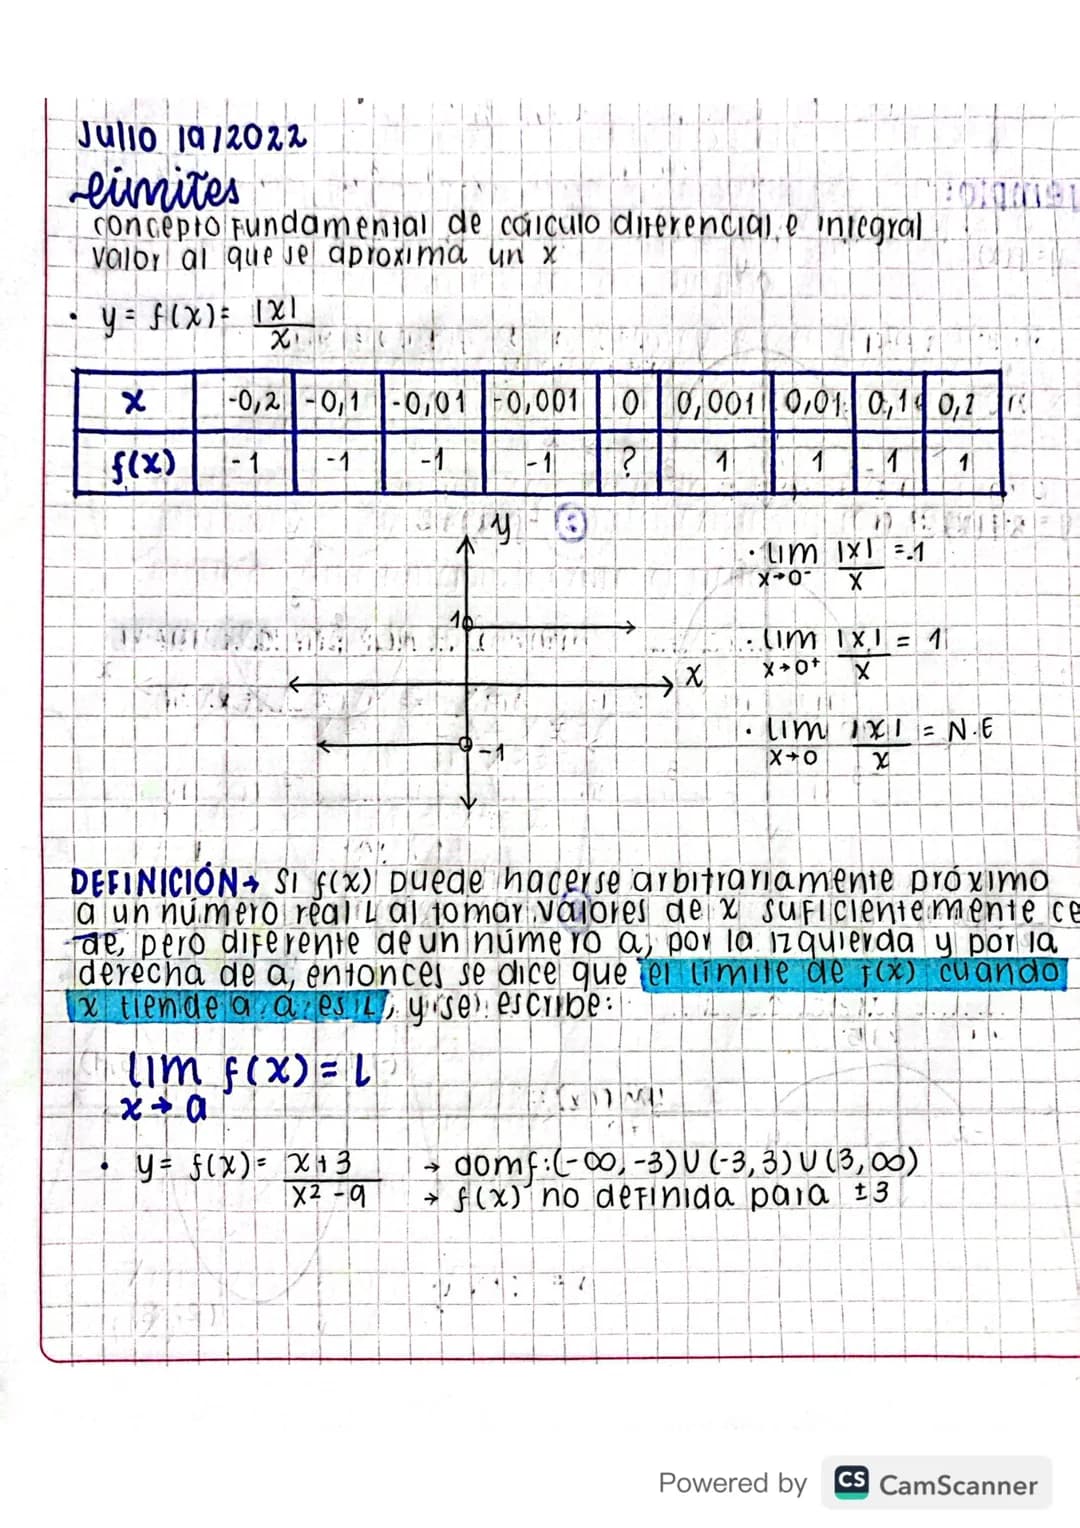 Julio 19/2022
Límites
concepto fundamental de cálculo diferencial e integral
valor al que se aproxima un x
• y = f(x) = |x|/x
x -0,2 -0,1 -0,01 -0,001 0 0,001 0,01 0,1 0,2
f(x) -1 -1 -1 -1 ? 1 1 1 1
y
1
x
-1
• lim x→0⁻ |x|/x = -1
• lim x→0⁺ |x|/x = 1
• lim x→0 |x|/x = N.E
DEFINICIÓN→ Si f(x) puede hacerse arbitrariamente próximo
a un número real L al tomar valores de x suficientemente ce
de, pero diferente de un número a, por la izquierda y por la
derecha de a, entonces se dice que el límite de f(x) cuando
x tiende a a es L, y se escribe:
lim f(x) = L
x→a
• y = f(x) = x+3/x²-9 → domf:(-∞,-3)∪(-3,3)∪(3,∞)
→ f(x) no definida para ±3
Powered by CS CamScanner